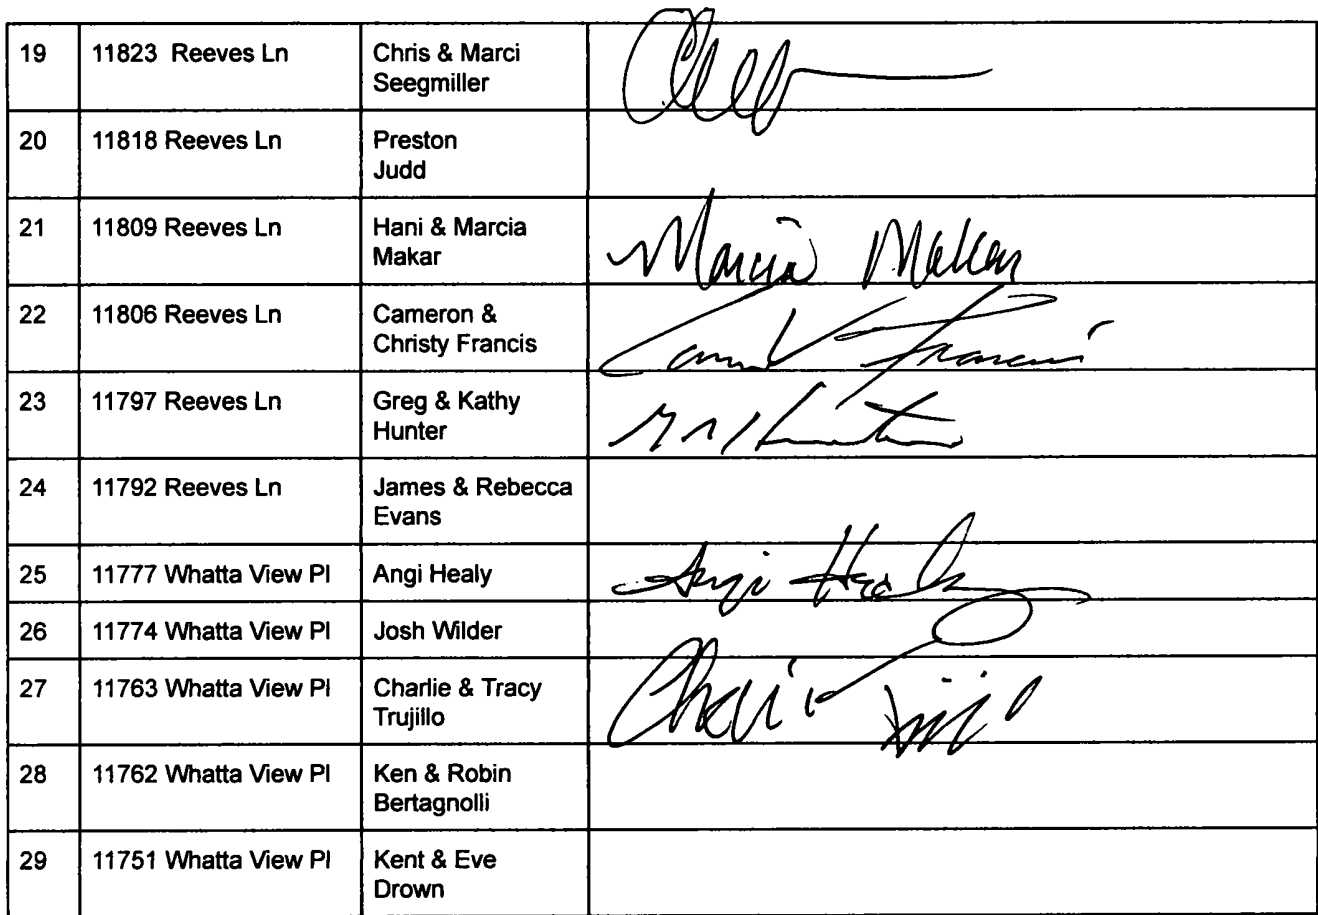 19 11823 Reeves Ln Chris & Marci
Seegmiller
20 11818 Reeves Ln Preston
Judd
21 11809 Reeves Ln Hani & Marcia
Makar Marcia Makar
22 11806 Reeves Ln Cameron &
Christy Francis Francis
23 11797 Reeves Ln Greg & Kathy
Hunter Hunter
24 11792 Reeves Ln James & Rebecca
Evans
25 11777 Whatta View Pl Angi Healy Angi Healy
26 11774 Whatta View Pl Josh Wilder
27 11763 Whatta View Pl Charlie & Tracy
Trujillo
28 11762 Whatta View Pl Ken & Robin
Bertagnolli
29 11751 Whatta View Pl Kent & Eve
Drown